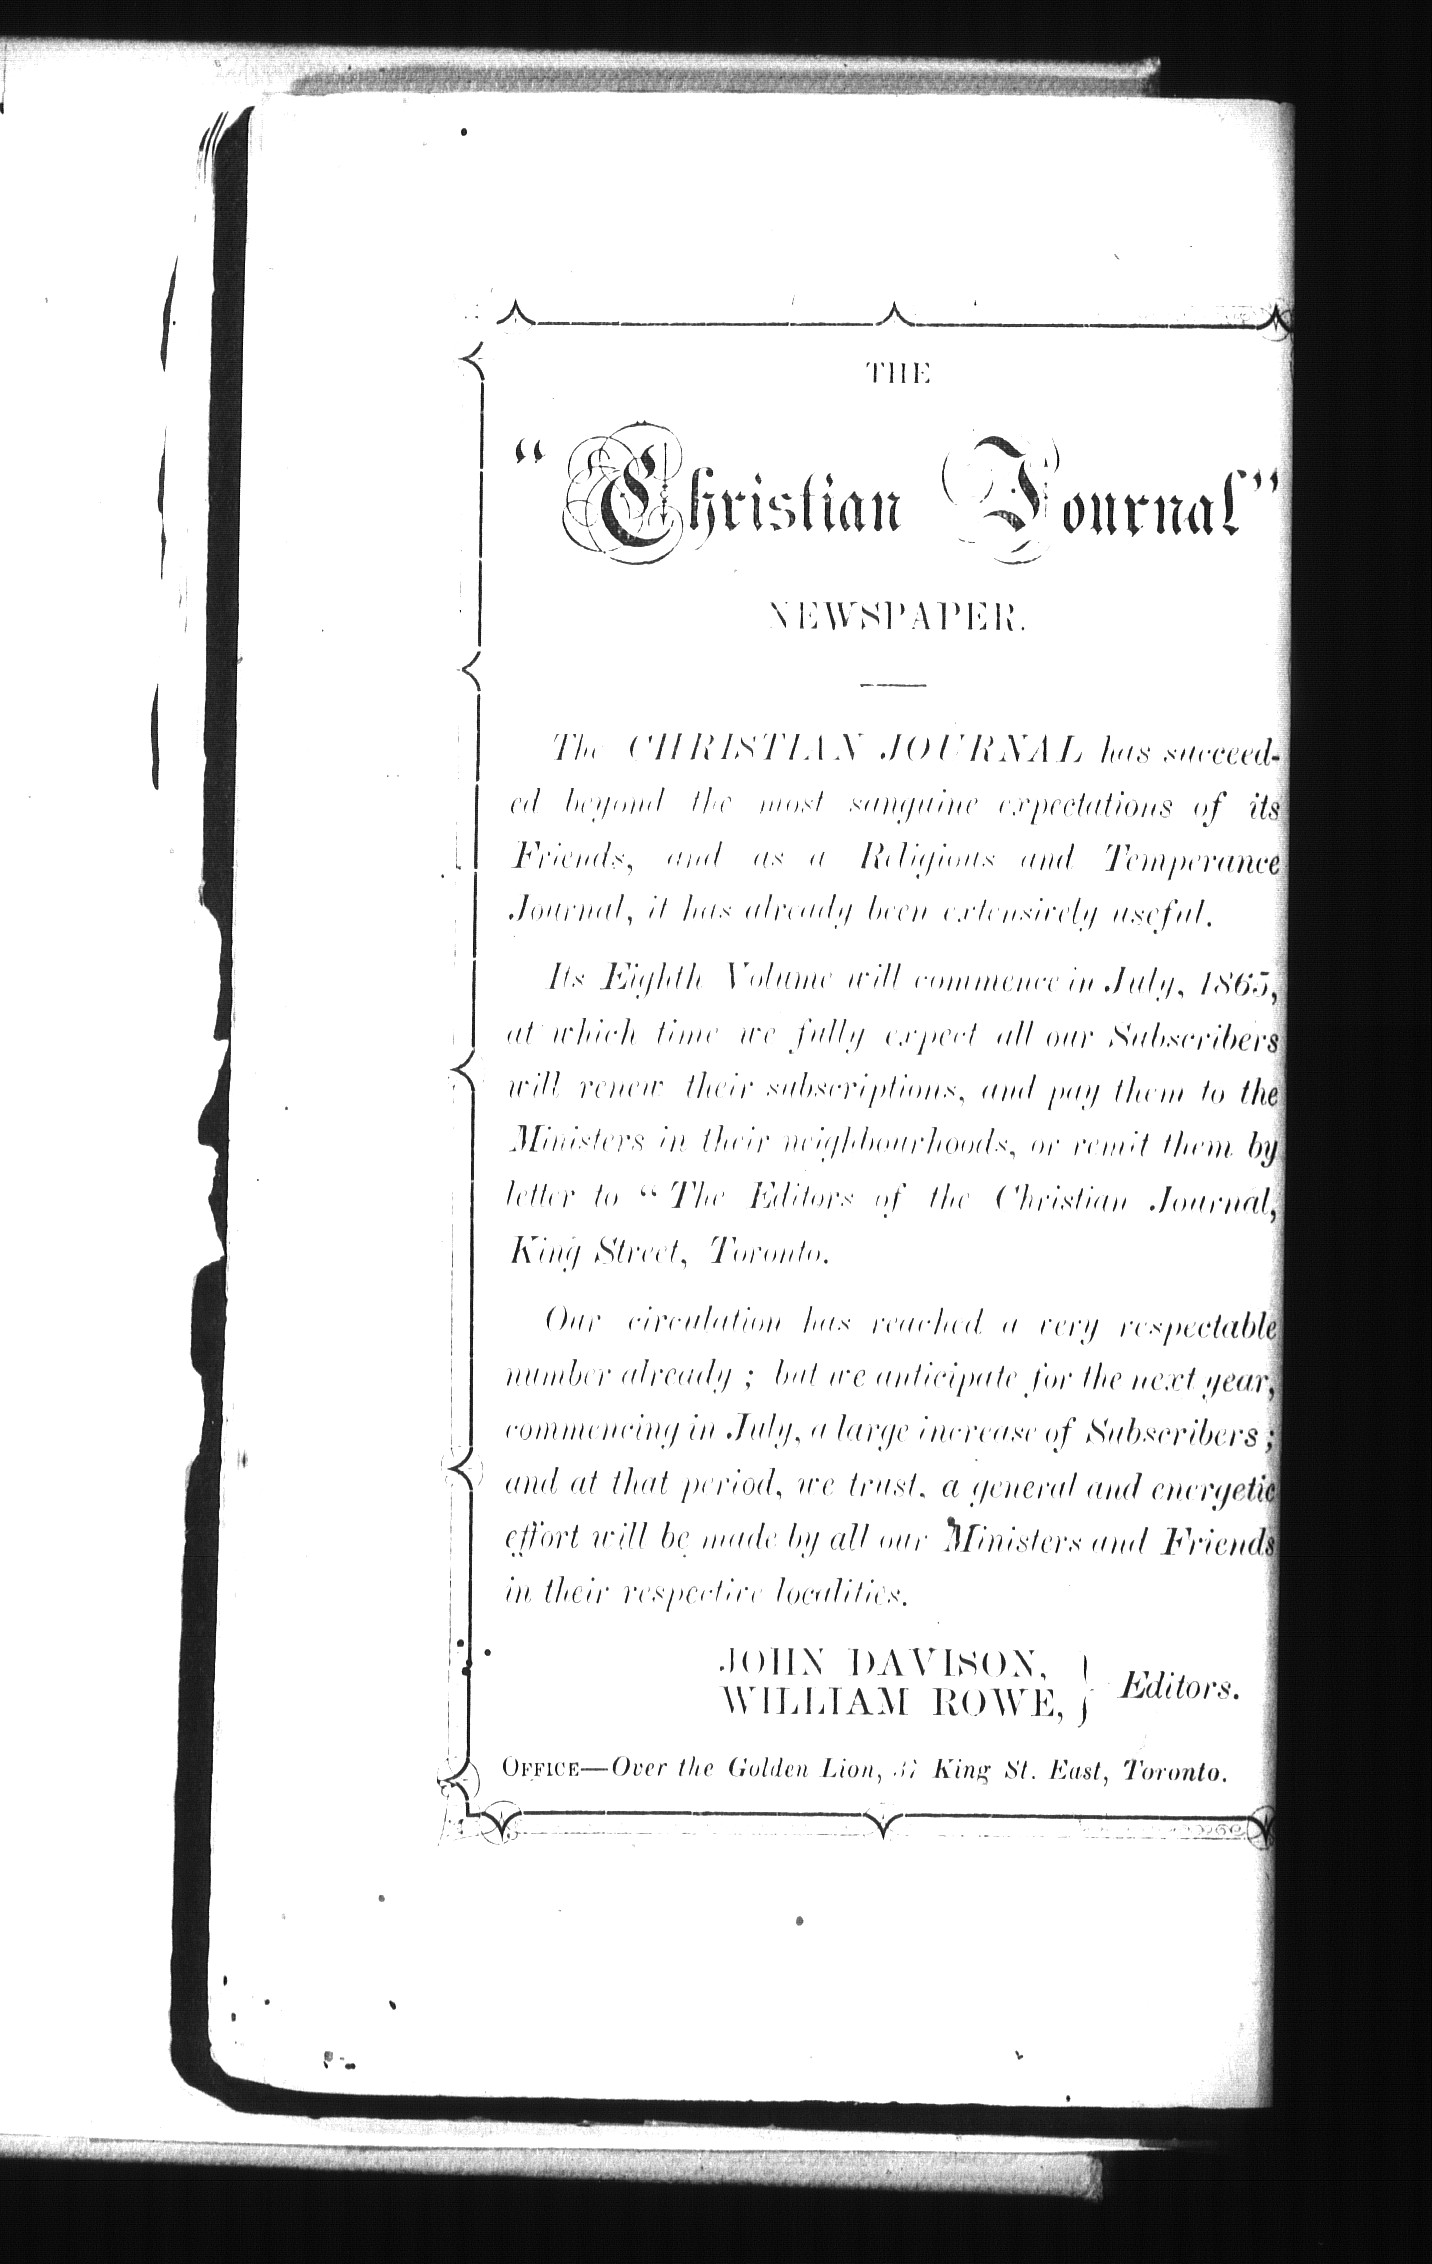 THE
"Christian Journal"
NEWSPAPER.
The CHRISTIAN JOURNAL has succeed-
ed beyond the most sanguine expectations of its
Friends, and as a Religious and Temperance
Journal, it has already been extensively useful.
Its Eighth Volume will commence in July, 1865,
at which time we fully expect all our Subscribers
will renew their subscriptions, and pay them to the
Ministers in their neighbourhoods, or remit them by
letter to "The Editors of the Christian Journal,
King Street, Toronto.
Our circulation has reached a very respectable
number already; but we anticipate for the next year,
commencing in July, a large increase of Subscribers;
and at that period, we trust, a general and energetic
effort will be made by all our Ministers and Friends
in their respective localities.
JOHN DAVISON,
WILLIAM ROWE, } Editors.
OFFICE—Over the Golden Lion, King St. East, Toronto.